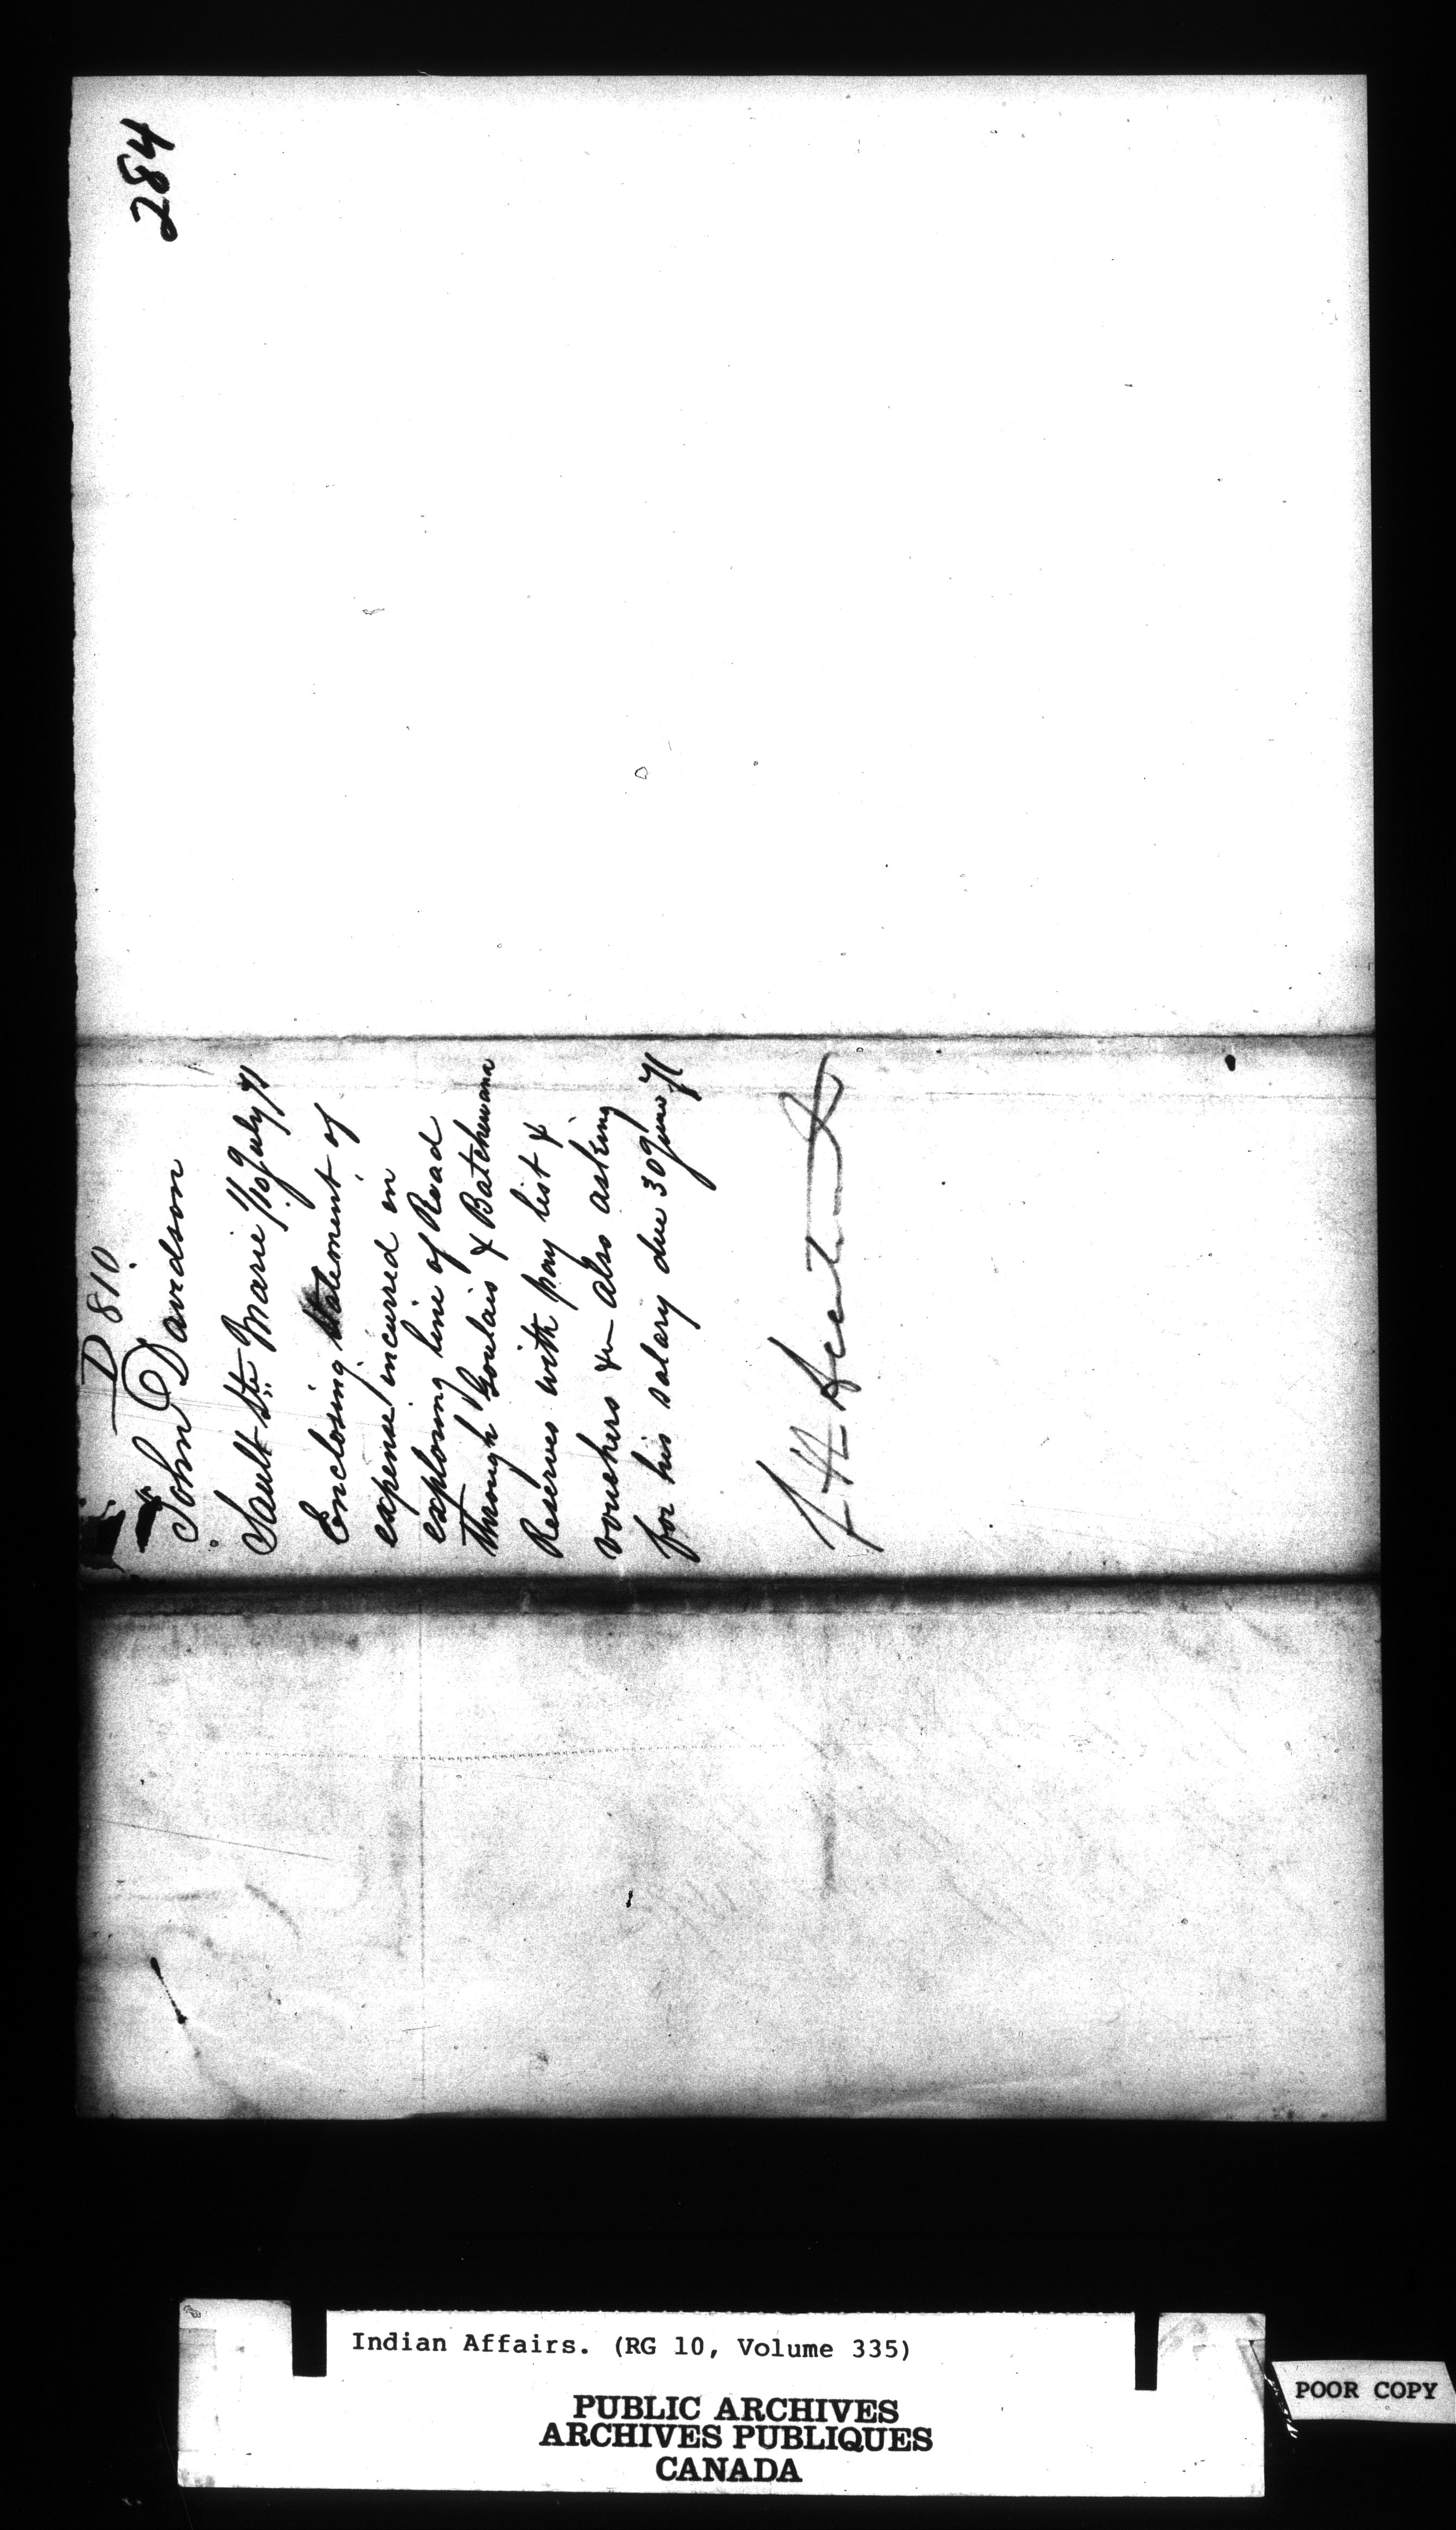 284
D 810
John Davidson
Sault Ste Marie 1/10 July 71
Enclosing statement of
expense incurred in
exploring line of Road
through Goulais & Batchewana
Reserves with pay list &
vouchers &c also asking
for his salary due 30 June 71
Indian Affairs. (RG 10, Volume 335)
PUBLIC ARCHIVES
ARCHIVES PUBLIQUES
CANADA
POOR COPY